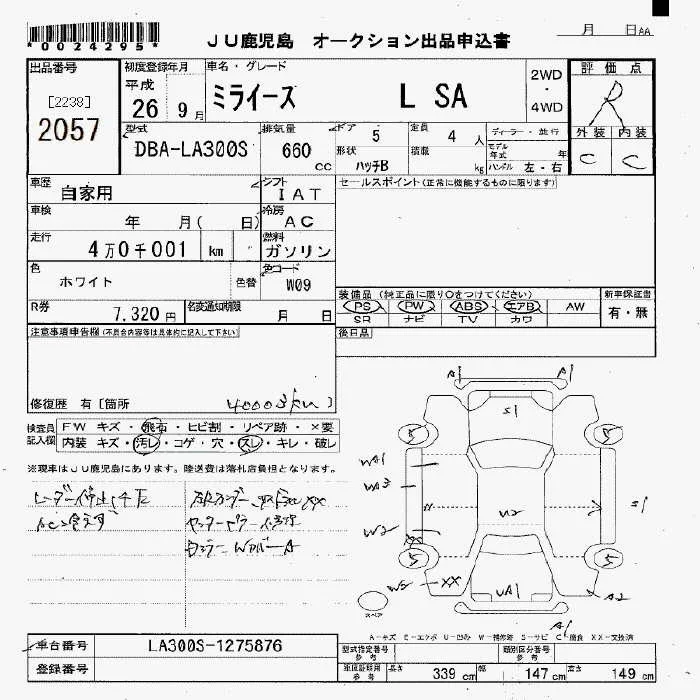 *0024295*
JU鹿児島 オークション出品申込書
月 日AA
出品番号
[2238]
2057
初度登録年月
平成
26 9月
車名・グレード
ミライース L SA
2WD
・
4WD
評価点
R
外装 内装
C C
型式
DBA-LA300S
排気量
660 cc
ドア 5
形状 ハッチB
定員 4 人
積載 kg
ディーラー・並行
モデル年式 年
ハンドル 左・右
車歴
自家用
シフト
IAT
セールスポイント(正常に機能するものに限ります)
車検
年 月( 日)
冷房
AC
走行
4万0千001 km
燃料
ガソリン
色
ホワイト
色替
色コード
W09
R券
7,320円
名変通知期限
月 日
装備品 (純正品に限り○をつけてください)
PS PW ABS エアB AW
SR ナビ TV カワ
新車保証書
有・無
注意事項申告欄(不具合内容等は具体的に記入して下さい)
後日品
修復歴 有[箇所 40003km ]
検査員記入欄
FW キズ・飛石・ヒビ割・リペア跡・×要
内装 キズ・汚レ・コゲ・穴・スレ・キレ・破レ
※現車はJU鹿児島にあります。陸送費は落札店負担となります。
A1 A1
S1
5 5
WA1
WA3
W2
XX
U2
S1
5 5
W2 XX
UA1
A2
A1
スペア
A-キズ E-エクボ U-凹み W-補修跡 S-サビ C-腐食 XX-交換済
車台番号 LA300S-1275876
登録番号
型式指定番号
参考
類別区分番号
参考
車庫証明用
参考
長さ 339 cm 幅 147 cm 高さ 149 cm